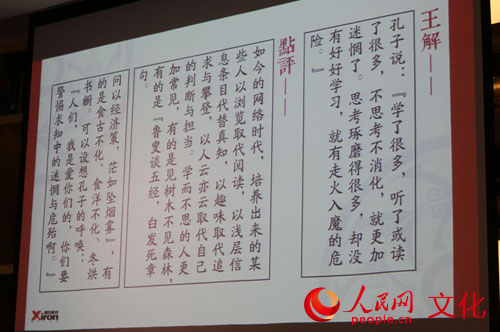 王解——
孔子说：『学了很多，听了或读
了很多，不思考不消化，就更加
迷惘了。思考琢磨得很多，却没
有好好学习，就有走火入魔的危
险。』
點評——
如今的网络时代，培养出来的某
些人以浏览取代阅读，以浅层信
息条目代替真知，以趣味取代追
求与攀登，以人云亦云取代自己
的判断与担当。学而不思的人更
加常见，有的是见树木不见森林，
有的是『鲁叟谈五经，白发死章
句。
问以经济策，茫如坠烟雾』，有
的是食古不化、食洋不化、冬烘
书橱。可以设想孔子的呼唤：
『人们，我是爱你们的，你们要
警惕求知中的迷惘与危殆啊。』
Xiron
人民网 文化
people.cn